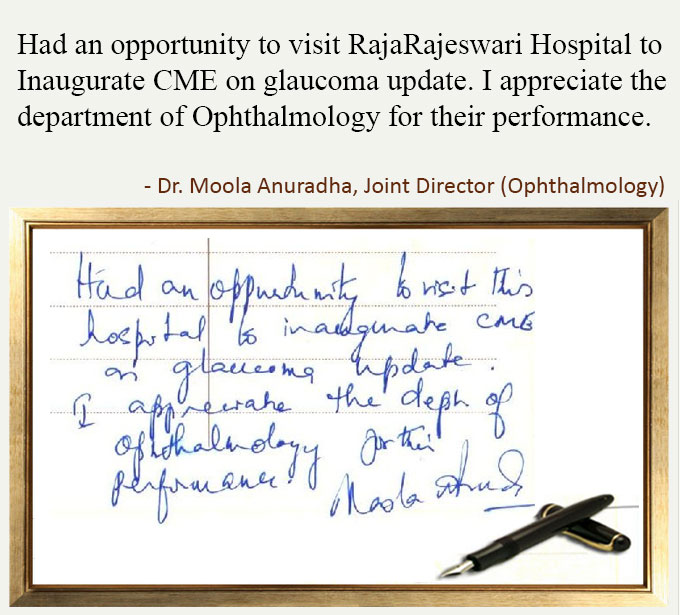 Had an opportunity to visit RajaRajeswari Hospital to
Inaugurate CME on glaucoma update. I appreciate the
department of Ophthalmology for their performance.
- Dr. Moola Anuradha, Joint Director (Ophthalmology)
Had an oppurtunity to visit this
hospital to inaugurate CME
on glaucoma update.
I appreciate the deptt of
ophthalmology for their
performance.
Moola